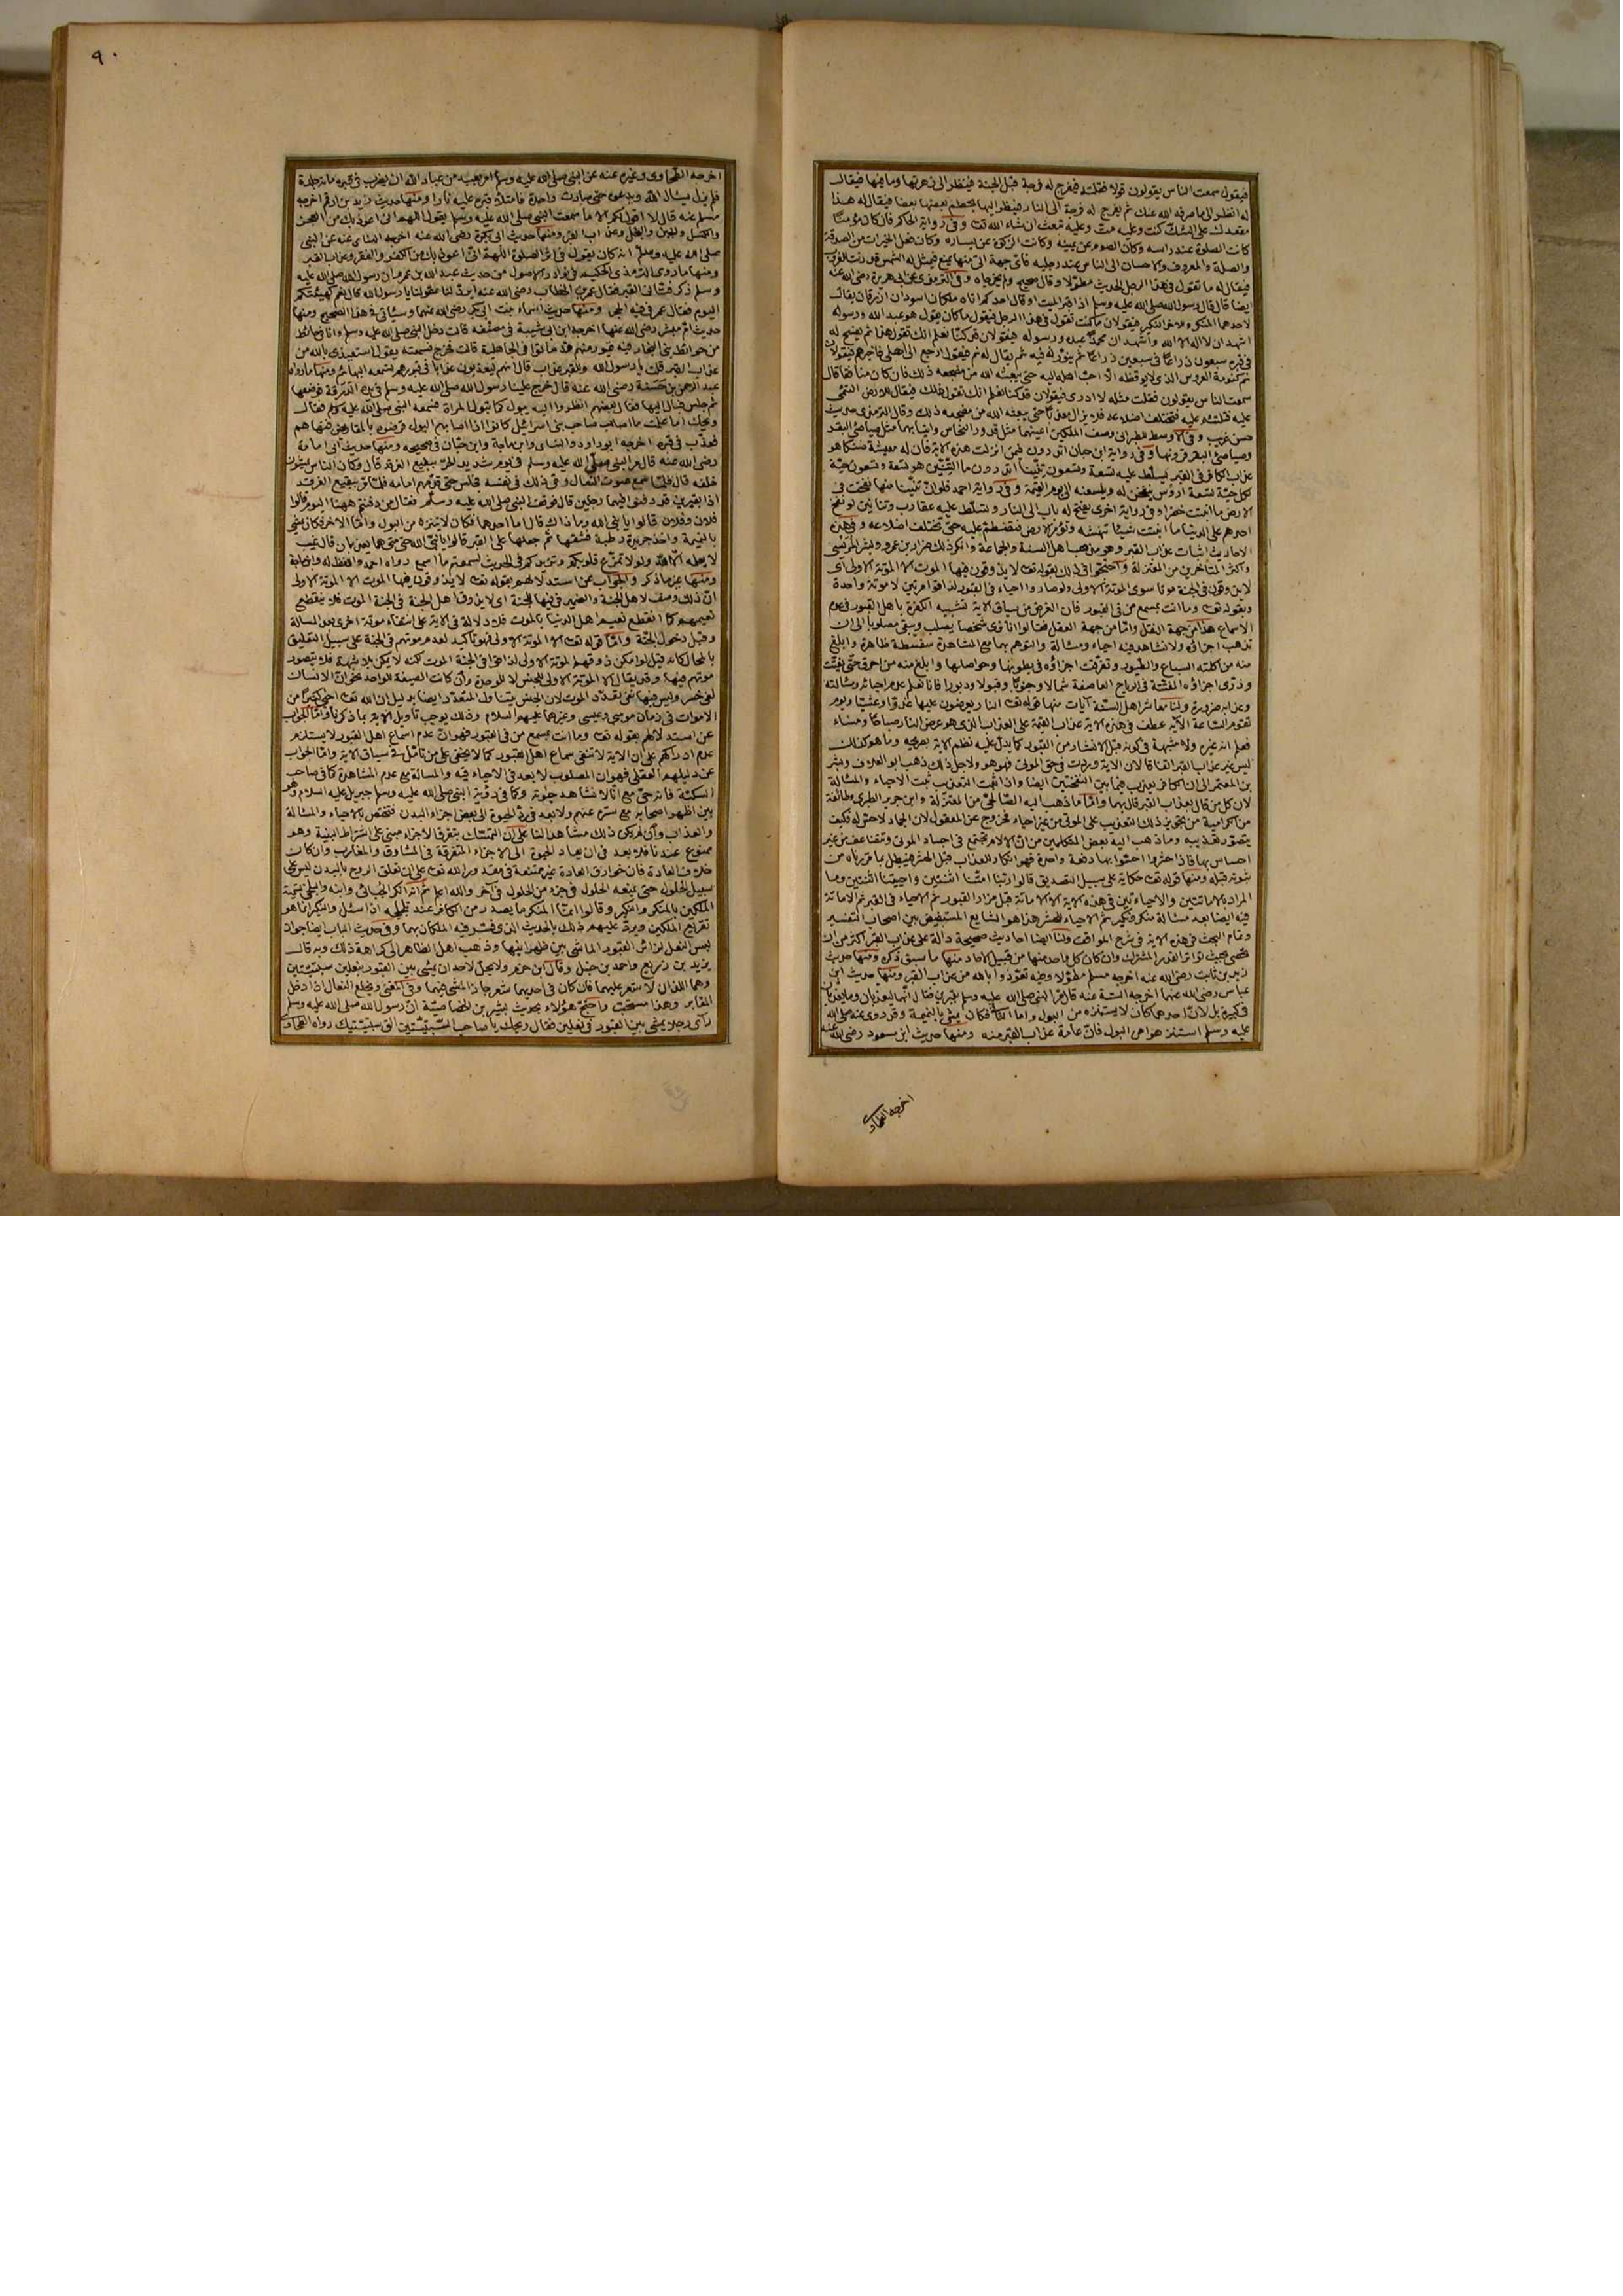 فيقول سمعت الناس يقولون قولا فقلته فيفرج له فرجة قبل الجنة فينظر الى زهرتها وما فيها فيقال
له انظر الى ما صرفه الله عنك ثم يفرج له فرجة الى النار فينظر اليها يحطم بعضها بعضا فيقال له هذا
مقعدك على الشك كنت وعليه مت وعليه تبعث ان شاء الله تعـ وفي رواية الحاكم فان كان مؤمنا
كانت الصلوة عند راسه وكان الصوم عن يمينه وكانت الزكوة عن يساره وكان فعل الخيرات من الصدقة
والصلة والمعروف والاحسان الى الناس عند رجليه فاي جهة اتى منها يمنع فيمثل له الشمس قد دنت للغروب
فيقال له ما تقول في هذا الرجل الحديث مطولا وقال صحيح ولم يخرجاه وفي الترمذي عن ابي هريرة رضي الله عنه
ايضا قال قال رسول الله صلى الله عليه وسلم اذا اقبر الميت او قال احدكم اتاه ملكان اسودان ازرقان يقال
لاحدهما المنكر وللاخر النكير فيقولان ما كنت تقول في هذا الرجل فيقول ما كان يقول هو عبد الله ورسوله
اشهد ان لا اله الا الله واشهد ان محمدا عبده ورسوله فيقولان قد كنا نعلم انك تقول هذا ثم يفسح له
في قبره سبعون ذراعا في سبعين ذراعا ثم ينور له فيه ثم يقال له نم فيقول ارجع الى اهلي فاخبرهم فيقولان
نم كنومة العروس الذي لا يوقظه الا احب اهله اليه حتى يبعثه الله من مضجعه ذلك فان كان منافقا قال
سمعت الناس يقولون فقلت مثله لا ادري فيقولان قد كنا نعلم انك تقول ذلك فيقال للارض التئمي
عليه فتلتئم عليه فتختلف اضلاعه فلا يزال معذبا حتى يبعثه الله من مضجعه ذلك وقال الترمذي حديث
حسن غريب وفي الاوسط للطبراني وصف الملكين اعينهما مثل قدور النحاس وانيابهما مثل صياصي البقر
وفي رواية ابن حبان اتدرون فيمن انزلت هذه الاية فان له معيشة ضنكا هو
عذاب الكافر في القبر يسلط عليه تسعة وتسعون تنينا اتدرون ما التنين هو تسعة وتسعون حية
لكل حية تسعة ارؤس ينفخن له ويلسعنه الى يوم القيمة وفي رواية احمد فلو ان تنينا منها نفخت في
الارض ما انبتت خضراء وفي رواية اخرى يفتح له باب الى النار وتسلط عليه عقارب وتنانين لو نفخ
احدهم على الدنيا ما انبتت شيئا تنهشه وتؤمر الارض فتنضم عليه حتى تختلف اضلاعه وفي هذه
الاحاديث اثبات عذاب القبر وهو مذهب اهل السنة والجماعة وانكر ذلك ضرار بن عمرو وبشر المريسي
واكثر المتاخرين من المعتزلة واحتجوا في ذلك بقوله تعـ لا يذوقون فيها الموت الا الموتة الاولى اي
لا يذوقون في الجنة موتا سوى الموتة الاولى ولو صاروا احياء في القبور لذاقوا مرتين لا موتة واحدة
وبقوله تعـ وما انت بمسمع من في القبور فان الغرض من سياق الاية تشبيه الكفرة باهل القبور في عدم
الاسماع هذا من جهة النقل واما من جهة العقل فقالوا انا نرى شخصا يصلب ويبقى مصلوبا الى ان
تذهب اجزاؤه ولا نشاهد فيه احياء ومسالة والتوهم بهما مع المشاهدة سفسطة ظاهرة وابلغ
منه من اكلته السباع والطيور وتفرقت اجزاؤه في بطونها وحواصلها وابلغ منه من احرق حتى يفتت
وذري اجزاؤه المفتتة في الرياح العاصفة شمالا وجنوبا وقبولا ودبورا فانا نعلم عدم احيائه ومسالته
وعذابه ضرورة ولنا معاشر اهل السنة آيات منها قوله تعـ النار يعرضون عليها غدوا وعشيا ويوم
تقوم الساعة الآية عطف في هذه الاية عذاب القيمة على العذاب الذي هو عرض النار صباحا ومساء
فعلم انه غيره ولا شبهة في كونه قبل الانشار من القبور كما يدل عليه نظم الاية بصريحه وما هو كذلك
ليس غير عذاب القبر اتفاقا لان الاية وردت في حق الموتى فهو هو ولاجل ذلك ذهب ابو الهذيل وبشر
بن المعتمر الى ان الكافر يعذب فيما بين النفختين ايضا واذا ثبت التعذيب ثبت الاحياء والمسالة
لان كل من قال بعذاب القبر قال بهما واما ما ذهب اليه الصالحي من المعتزلة وابن جرير الطبري وطائفة
من الكرامية من تجويز ذلك التعذيب على الموتى من غير احياء فخروج عن المعقول لان الجماد لا حس له فكيف
يتصور تعذيبه وما ذهب اليه بعض المتكلمين من ان الالام تجتمع في اجساد الموتى وتتضاعف من غير
احساس بها فاذا حشروا احسوا بها دفعة واحدة فهو انكار للعذاب قبل الحشر فيبطل بما قررناه من
ثبوته قبله ومنها قوله تعـ حكاية على سبيل التصديق قالوا ربنا امتنا اثنتين واحييتنا اثنتين وما
المراد بالاماتتين والاحياءتين في هذه الاية الا الاماتة قبل مزار القبور ثم الاحياء في القبر ثم الاماتة
فيه ايضا بعد مسالة منكر ونكير ثم الاحياء للحشر هذا هو الشايع المستفيض بين اصحاب التفسير
وتمام البحث في هذه الاية في شرح المواقف ولنا ايضا احاديث صحيحة دالة على عذاب القبر اكثر من ان
تحصى بحيث تواتر القدر المشترك وان كان كل واحد منها من قبيل الاحاد منها ما سبق ذكره ومنها حديث
زيد بن ثابت رضي الله عنه اخرجه مسلم مطولا وفيه تعوذوا بالله من عذاب القبر ومنها حديث ابن
عباس رضي الله عنهما اخرجه الستة عنه قال مر النبي صلى الله عليه وسلم بقبرين فقال انهما ليعذبان وما يعذبان
في كبير بل لان احدهما كان لا يستنزه من البول واما الثاني فكان يمشي بالنميمة وقد روي عنه صلى الله
عليه وسلم استنزهوا من البول فان عامة عذاب القبر منه ومنها حديث ابن مسعود رضي الله عنه
اخرجه الطحاوي
٩٠
اخرجه الطحاوي وغيره عنه عن النبي صلى الله عليه وسلم امر بعبد من عباد الله ان يضرب في قبره مائة جلدة
فلم يزل يسئال الله ويدعوه حتى صارت واحدة فامتلأ قبره عليه نارا ومنها حديث زيد بن ارقم اخرجه
مسلم عنه قال لا اقول لكم الا ما سمعت النبي صلى الله عليه وسلم يقول اللهم اني اعوذ بك من العجز
والكسل والجبن والبخل وعذاب القبر ومنها حديث ابي بكرة رضي الله عنه اخرجه النسائي عنه عن النبي
صلى الله عليه وسلم انه كان يقول في اثر الصلوة اللهم اني اعوذ بك من الكفر والفقر وعذاب القبر
ومنها ما روى الترمذي الحكيم في نوادر الاصول من حديث عبد الله بن عمر ان رسول الله صلى الله عليه
وسلم ذكر فتاني القبر فقال عمر بن الخطاب رضي الله عنه ايرد لنا عقولنا يا رسول الله قال نعم كهيئتكم
اليوم فقال عمر في فيه الحجر ومنها حديث اسماء بنت ابي بكر رضي الله عنهما وسياتي في هذا الصحيح ومنها
حديث ام مبشر رضي الله عنها اخرجه ابن ابي شيبة في مصنفه قالت دخل النبي صلى الله عليه وسلم وانا في حائط
من حوائط بني النجار فيه قبور منهم قد ماتوا في الجاهلية قالت فخرج فسمعته يقول استعيذي بالله من
عذاب القبر قلت يا رسول الله وللقبر عذاب قال انهم ليعذبون عذابا في قبورهم تسمعه البهائم ومنها ما رواه
عبد الرحمن بن حسنة رضي الله عنه قال خرج علينا رسول الله صلى الله عليه وسلم في يده الدرقة فوضعها
ثم جلس فبال اليها فقال بعضهم انظروا اليه يبول كما تبول المراة فسمعه النبي صلى الله عليه وسلم فقال
ويحك اما علمت ما اصاب صاحب بني اسرائيل كانوا اذا اصابهم البول قرضوه بالمقاريض فنهاهم
فعذب في قبره اخرجه ابو داود والنسائي وابن ماجة وابن حبان في صحيحه ومنها حديث ابي امامة
رضي الله عنه قال مر النبي صلى الله عليه وسلم في يوم شديد الحر ببقيع الغرقد قال وكان الناس يمشون
خلفه قال فلما سمع صوت النعال وقر ذلك في نفسه فجلس حتى قدمهم امامه فلما مر ببقيع الغرقد
اذا بقبرين قد دفنوا فيهما رجلين قال فوقف النبي صلى الله عليه وسلم فقال من دفنتم ههنا اليوم قالوا
فلان وفلان قالوا يا نبي الله وما ذاك قال اما احدهما فكان لا يتنزه من البول واما الاخر فكان يمشي
بالنميمة واخذ جريدة رطبة فشقها ثم جعلها على القبر قالوا يا نبي الله حتى متى هما يعذبان قال غيب
لا يعلمه الا الله ولولا تمزع قلوبكم وتزيدكم في الحديث لسمعتم ما اسمع رواه احمد واللفظ له وابن ماجة
ومنها غير ما ذكر والجواب عن استدلالهم بقوله تعـ لا يذوقون فيها الموت الا الموتة الاولى
ان ذلك وصف لاهل الجنة والضمير في فيها للجنة اي لا يذوق اهل الجنة في الجنة الموت فلا ينقطع
نعيمهم كما انقطع نعيم اهل الدنيا بالموت فلا دلالة في الاية على انتفاء موتة اخرى بعد المسالة
وقبل دخول الجنة واما قوله تعـ الا الموتة الاولى فهو تاكيد لعدم موتهم في الجنة على سبيل التعليق
بالمحال كانه قيل لو امكن ذوقهم الموتة الاولى لذاقوا في الجنة الموت لكنه لا يمكن بلا شبهة فلا يتصور
موتهم فيها وقد يقال الا الموتة الاولى للجنس لا للوحدة وان كانت الصيغة للواحد نحو ان الانسان
لفي خسر وليس فيها نفي تعدد الموت لان الجنس يتناول المتعدد ايضا بدليل ان الله تعـ احيى كثيرا من
الاموات في زمان موسى وعيسى وغيرهما عليهم السلام وذلك يوجب تاويل الاية بما ذكرنا واما الجواب
عن استدلالهم بقوله تعـ وما انت بمسمع من في القبور فهو ان عدم اسماع اهل القبور لا يستلزم
عدم ادراكهم على ان الاية لا تنفي سماع اهل القبور كما لا يخفى على من تامل في سياق الاية واما الجواب
عن دليلهم العقلي فهو ان المصلوب لا بعد في الاحياء فيه والمسالة مع عدم المشاهدة كما في صاحب
السكتة فانه حي مع انا لا نشاهد حيوته وكما في رؤية النبي صلى الله عليه وسلم جبريل عليه السلام وهو
بين اظهر اصحابه مع ستره عنهم ولا بعد في رد الحيوة الى بعض اجزاء البدن فتختص بالاحياء والمسالة
والعذاب وان لم يكن ذلك مشاهدا لنا على ان التمسك بتفرق الاجزاء مبني على اشتراط البنية وهو
ممنوع عندنا فلا بعد في ان يعاد الحيوة الى الاجزاء المتفرقة في المشارق والمغارب وان كان
خلاف العادة فان خوارق العادة غير ممتنعة في مقدور الله تعـ على ان تعلق الروح بالبدن ليس على
سبيل الحلول حتى يمنعه الحلول في جزء من الحلول في آخر والله اعلم ثم انه انكر الجبائي وابنه والبلخي تسمية
الملكين بالمنكر والنكير وقالوا انما المنكر ما يصدر من الكافر عند تلجلجه اذا سئل والنكير انما هو
تقريع الملكين ويرد عليهم ذلك بالحديث الذي فسر فيه الملكان بهما وفي حديث الباب ايضا جواز
لبس النعل لزائر القبور الماشي بين ظهرانيها وذهب اهل الظاهر الى كراهة ذلك وبه قال
يزيد بن زريع واحمد بن حنبل وقال ابن حزم ولا يحل لاحد ان يمشي بين القبور بنعلين سبتيتين
وهما اللذان لا شعر عليهما فان كان في احديهما شعر جاز المشي فيهما وفي المغني ويخلع النعال اذا دخل
المقابر وهذا مستحب واحتج هؤلاء بحديث بشير بن الخصاصية ان رسول الله صلى الله عليه وسلم
رآى رجلا يمشي بين القبور في نعلين فقال ويحك يا صاحب السبتيتين الق سبتيتيك رواه الطحاوي